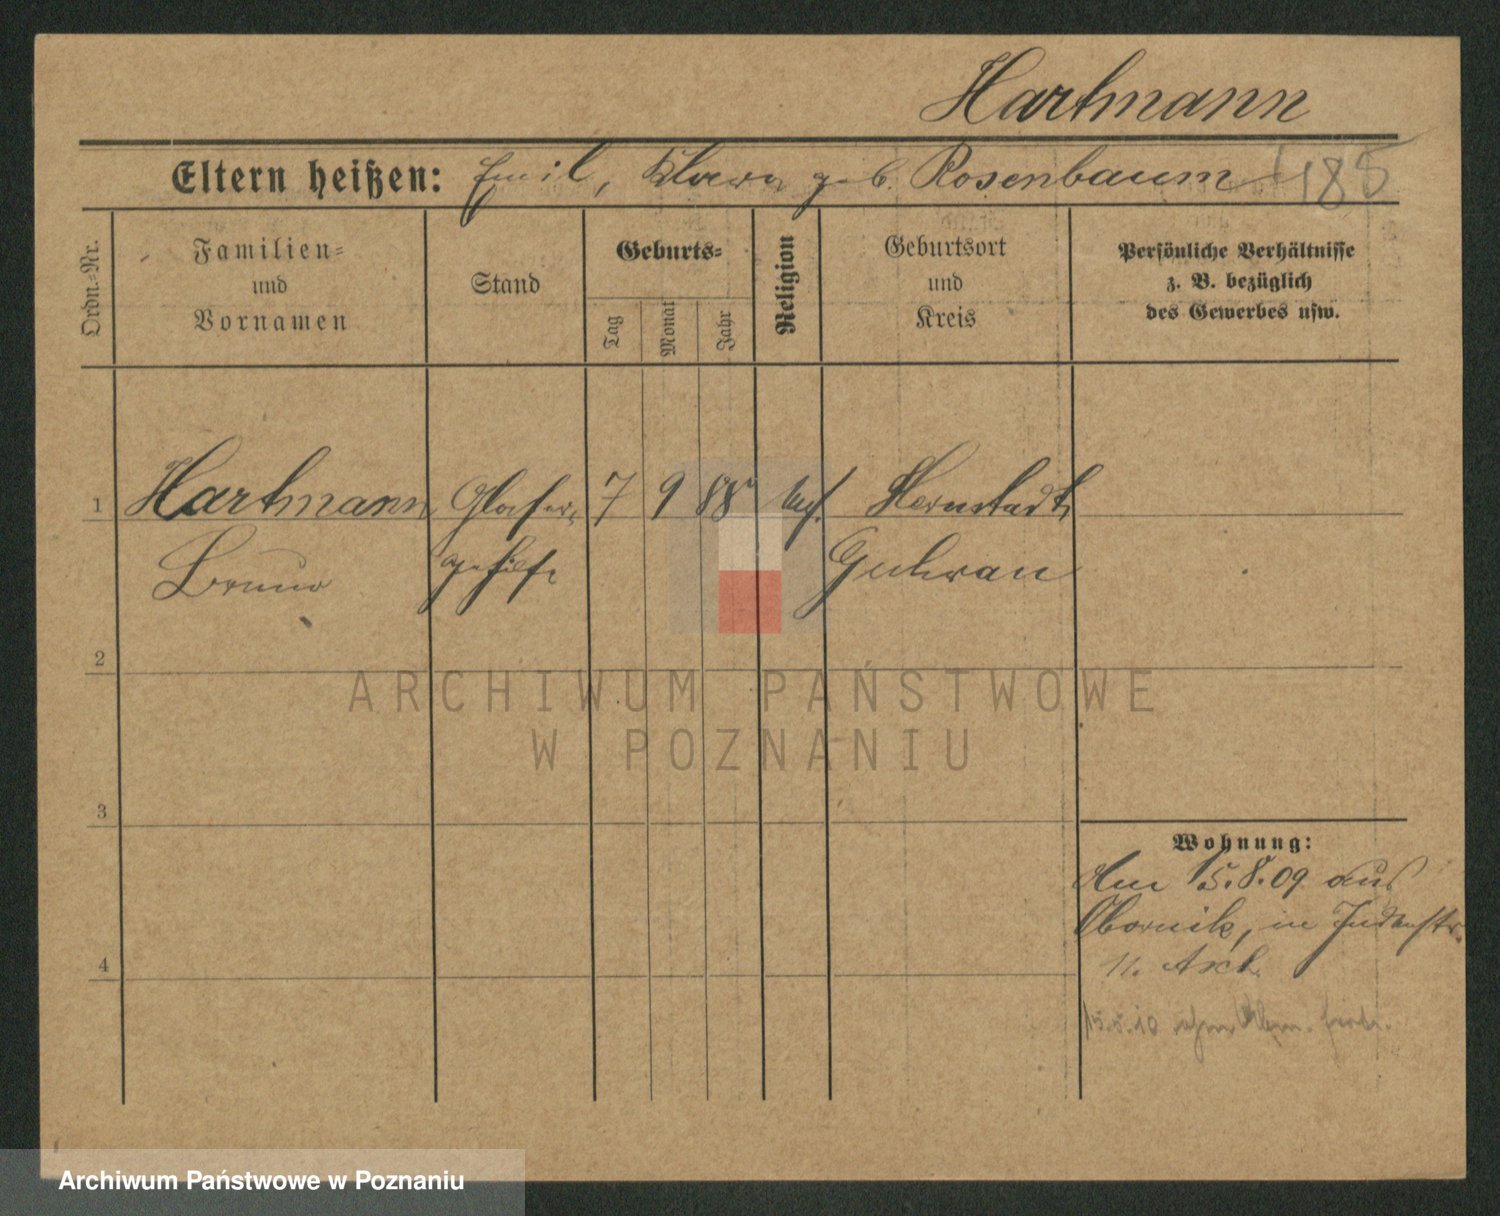 Hartmann
Eltern heißen: Emil, Klara geb. Rosenbaum 185
Ordn.-Nr.
Familien-
und
Vornamen
Stand
Geburts-
Tag
Monat
Jahr
Religion
Geburtsort
und
Kreis
Persönliche Verhältnisse
z. B. bezüglich
des Gewerbes usw.
1 Hartmann Glaser- 7 9 88 Herrnstadt
Bruno gehilfe Guhrau
2
ARCHIWUM PAŃSTWOWE
W POZNANIU
3
Wohnung:
Am 15.8.09 aus
Obornik, in Judenstr.
4
11.
15.5.10
Archiwum Państwowe w Poznaniu